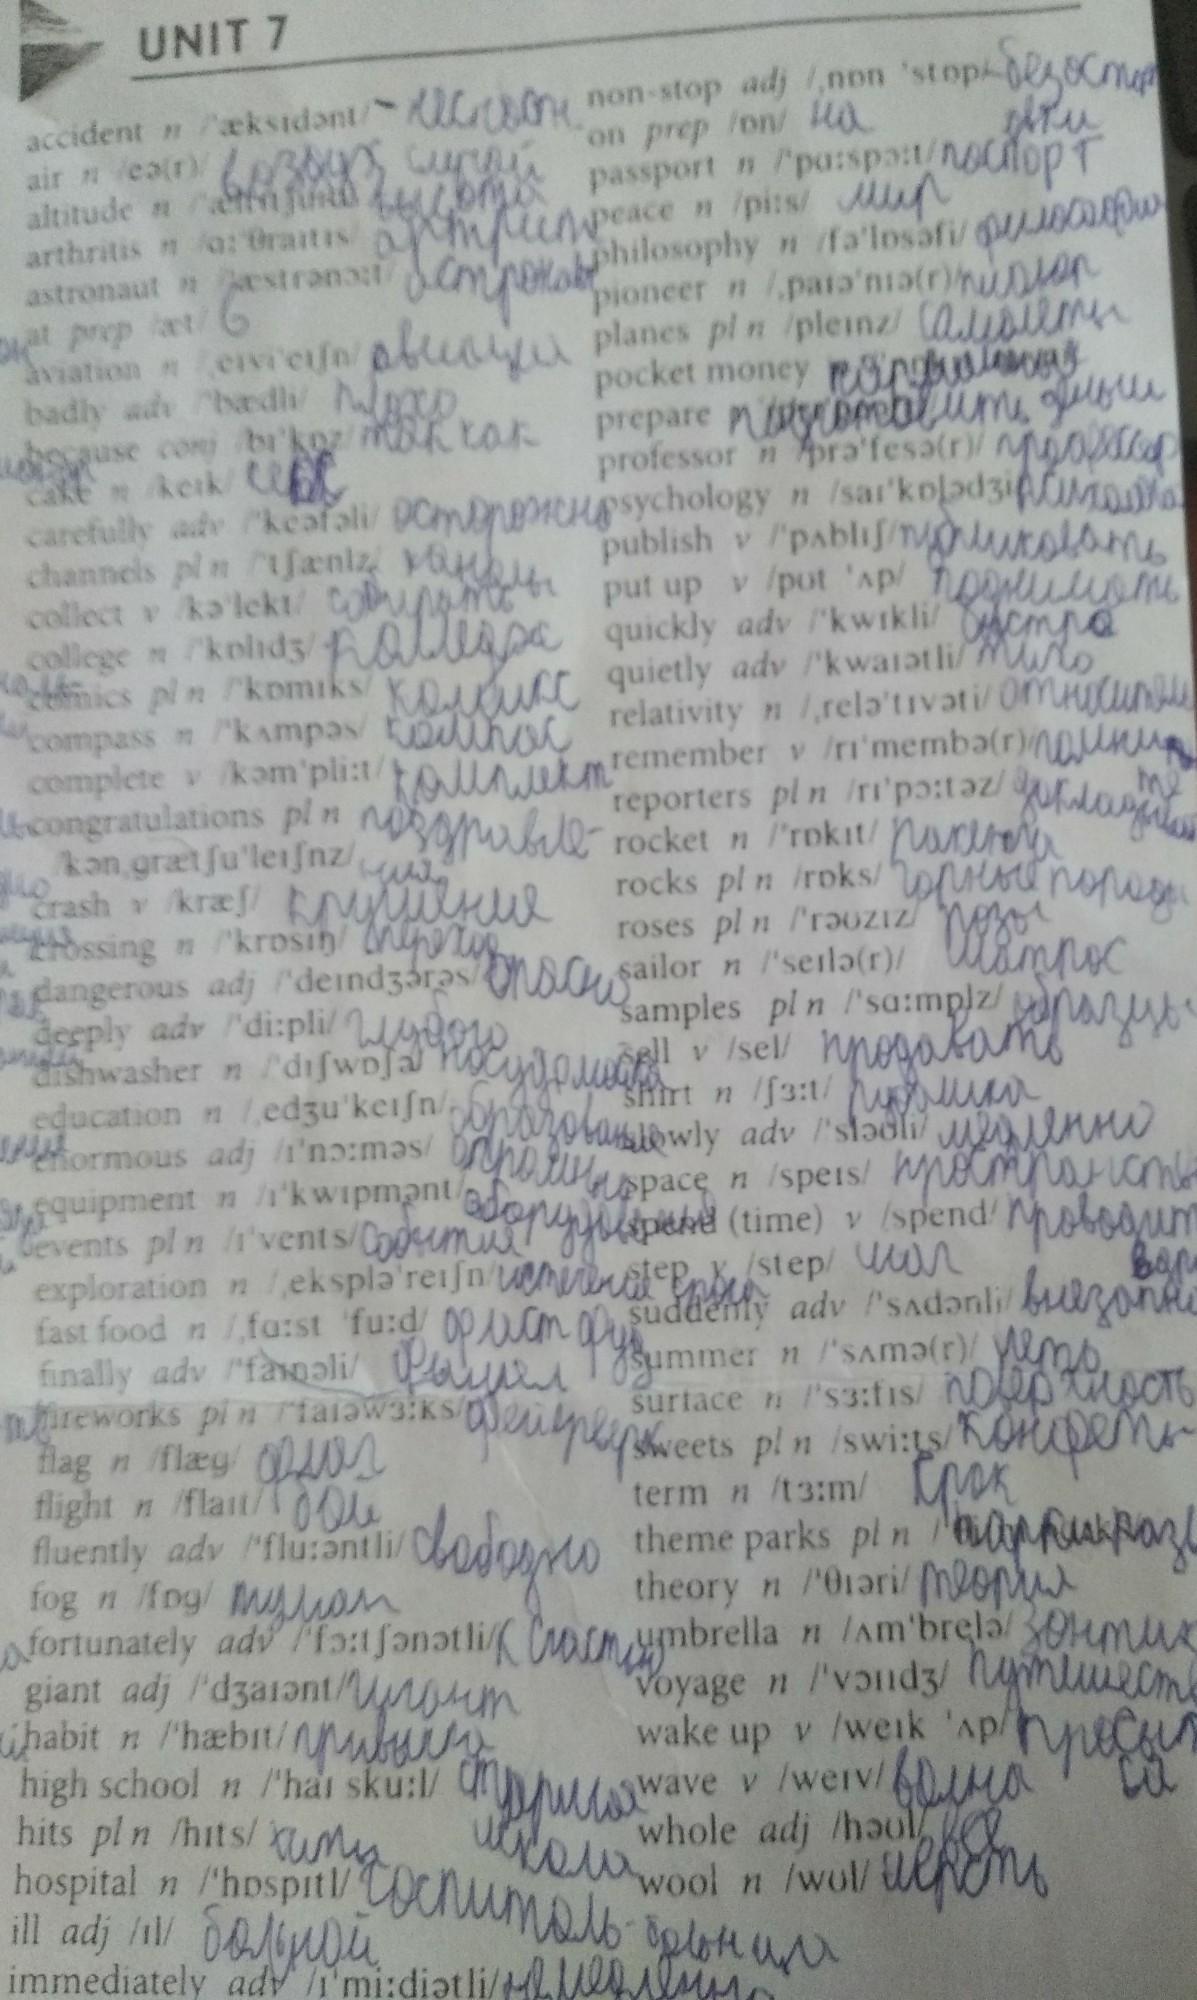 UNIT 7
accident n /ˈæksɪdənt/ - несчастн.
air n /eə(r)/ воздух случай
altitude n /ˈæltɪtjuːd/ высота
arthritis n /ɑːˈθraɪtɪs/
astronaut n /ˈæstrənɔːt/
at prep /æt/ в
aviation n /ˌeɪviˈeɪʃn/ авиация
badly adv /ˈbædli/ плохо
because conj /bɪˈkɒz/ так как
cake n /keɪk/
carefully adv /ˈkeəfəli/ осторожно
channels pl n /ˈtʃænlz/ каналы
collect v /kəˈlekt/ собирать
college n /ˈkɒlɪdʒ/ колледж
comics pl n /ˈkɒmɪks/ комикс
compass n /ˈkʌmpəs/ компас
complete v /kəmˈpliːt/ комплект
congratulations pl n поздравле-
/kənˌɡrætʃuˈleɪʃnz/ ния
crash v /kræʃ/ крушение
crossing n /ˈkrɒsɪŋ/ переход
dangerous adj /ˈdeɪndʒərəs/ опасно
deeply adv /ˈdiːpli/ глубоко
dishwasher n /ˈdɪʃwɒʃə/ посудомойка
education n /ˌedʒuˈkeɪʃn/ образование
enormous adj /ɪˈnɔːməs/
equipment n /ɪˈkwɪpmənt/
events pl n /ɪˈvents/ события
exploration n /ˌekspləˈreɪʃn/ истечение срока
fast food n /ˌfɑːst ˈfuːd/ фаст фуд
finally adv /ˈfaɪnəli/
fireworks pl n /ˈfaɪəwɜːks/ фейерверк
flag n /flæɡ/ флаг
flight n /flaɪt/
fluently adv /ˈfluːəntli/ свободно
fog n /fɒɡ/ туман
fortunately adv /ˈfɔːtʃənətli/ к счастью
giant adj /ˈdʒaɪənt/ гигант
habit n /ˈhæbɪt/ привычка
high school n /ˈhaɪ skuːl/ старшая
hits pl n /hɪts/ хиты школа
hospital n /ˈhɒspɪtl/ госпиталь - больница
ill adj /ɪl/ больной
immediately adv /ɪˈmiːdiətli/ немедленно
non-stop adj /ˌnɒn ˈstɒp/
on prep /ɒn/ на
passport n /ˈpɑːspɔːt/ паспорт
peace n /piːs/ мир
philosophy n /fəˈlɒsəfi/ философия
pioneer n /ˌpaɪəˈnɪə(r)/
planes pl n /pleɪnz/ самолеты
pocket money карманные
prepare подготовить деньги
professor n /prəˈfesə(r)/ профессор
psychology n /saɪˈkɒlədʒi/
publish v /ˈpʌblɪʃ/ публиковать
put up v /pʊt ˈʌp/ поднимать
quickly adv /ˈkwɪkli/ быстро
quietly adv /ˈkwaɪətli/ тихо
relativity n /ˌreləˈtɪvəti/
remember v /rɪˈmembə(r)/
reporters pl n /rɪˈpɔːtəz/
rocket n /ˈrɒkɪt/ ракета
rocks pl n /rɒks/ горные породы
roses pl n /ˈrəʊzɪz/ розы
sailor n /ˈseɪlə(r)/ матрос
samples pl n /ˈsɑːmplz/ образцы
sell v /sel/ продавать
shirt n /ʃɜːt/ рубашка
slowly adv /ˈsləʊli/ медленно
space n /speɪs/
spend (time) v /spend/ проводит
step v /step/ шаг
suddenly adv /ˈsʌdənli/ внезапно
summer n /ˈsʌmə(r)/
surface n /ˈsɜːfɪs/ поверхность
sweets pl n /swiːts/ конфеты
term n /tɜːm/ срок
theme parks pl n
theory n /ˈθɪəri/ теория
umbrella n /ʌmˈbrelə/ зонтик
voyage n /ˈvɔɪɪdʒ/
wake up v /weɪk ˈʌp/
wave v /weɪv/ волна
whole adj /həʊl/ все
wool n /wʊl/ шерсть